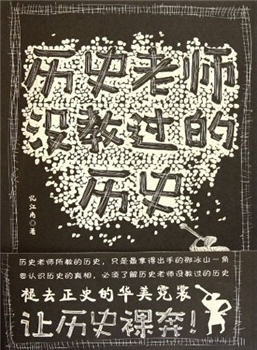 历史老师
没教过的
历史
忆江南
著
历史老师所教的历史，只是最拿得出手的那冰山一角
要认识历史的真相，必须了解历史老师没教过的历史
褪去正史的华美霓裳
让历史裸奔！